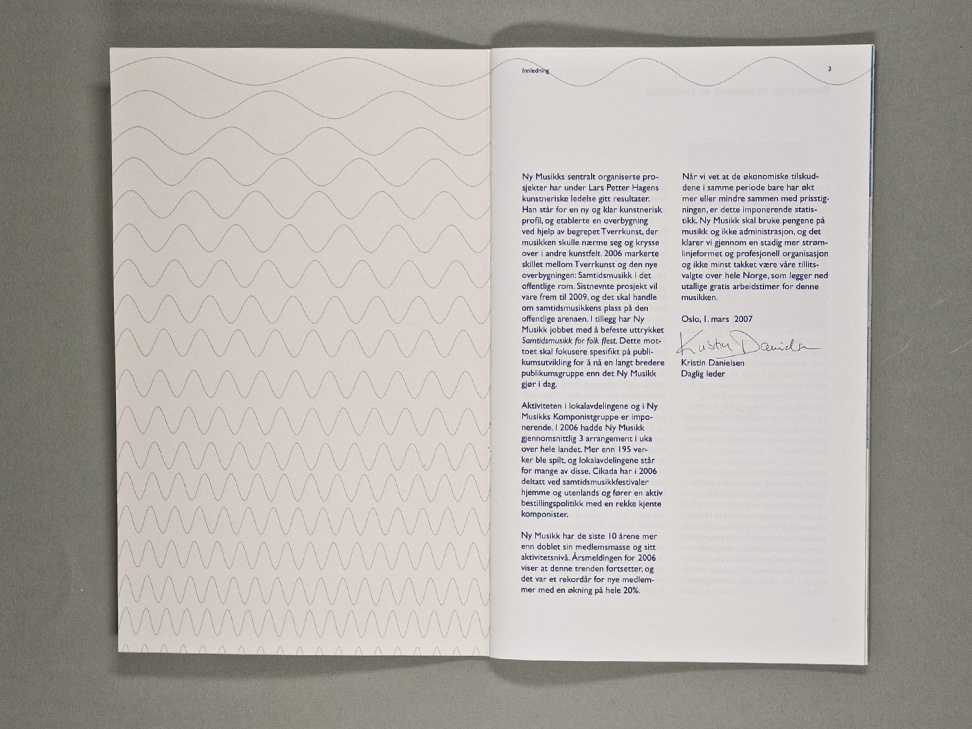 Innledning
3
Ny Musikks sentralt organiserte pro-
sjekter har under Lars Petter Hagens
kunstneriske ledelse gitt resultater.
Han står for en ny og klar kunstnerisk
profil, og etablerte en overbygning
ved hjelp av begrepet Tverrkunst, der
musikken skulle nærme seg og krysse
over i andre kunstfelt. 2006 markerte
skillet mellom Tverrkunst og den nye
overbygningen: Samtidsmusikk i det
offentlige rom. Sistnevnte prosjekt vil
vare frem til 2009, og det skal handle
om samtidsmusikkens plass på den
offentlige arenaen. I tillegg har Ny
Musikk jobbet med å befeste uttrykket
Samtidsmusikk for folk flest. Dette mot-
toet skal fokusere spesifikt på publi-
kumsutvikling for å nå en langt bredere
publikumsgruppe enn det Ny Musikk
gjør i dag.
Aktiviteten i lokalavdelingene og i Ny
Musikks Komponistgruppe er impo-
nerende. I 2006 hadde Ny Musikk
gjennomsnittlig 3 arrangement i uka
over hele landet. Mer enn 195 ver-
ker ble spilt, og lokalavdelingene står
for mange av disse. Cikada har i 2006
deltatt ved samtidsmusikkfestivaler
hjemme og utenlands og fører en aktiv
bestillingspolitikk med en rekke kjente
komponister.
Ny Musikk har de siste 10 årene mer
enn doblet sin medlemsmasse og sitt
aktivitetsnivå. Årsmeldingen for 2006
viser at denne trenden fortsetter, og
det var et rekordår for nye medlem-
mer med en økning på hele 20%.
Når vi vet at de økonomiske tilskud-
dene i samme periode bare har økt
mer eller mindre sammen med prisstig-
ningen, er dette imponerende statis-
tikk. Ny Musikk skal bruke pengene på
musikk og ikke administrasjon, og det
klarer vi gjennom en stadig mer strøm-
linjeformet og profesjonell organisasjon
og ikke minst takket være våre tillits-
valgte over hele Norge, som legger ned
utallige gratis arbeidstimer for denne
musikken.
Oslo, 1. mars 2007
Kristin Danielsen
Kristin Danielsen
Daglig leder